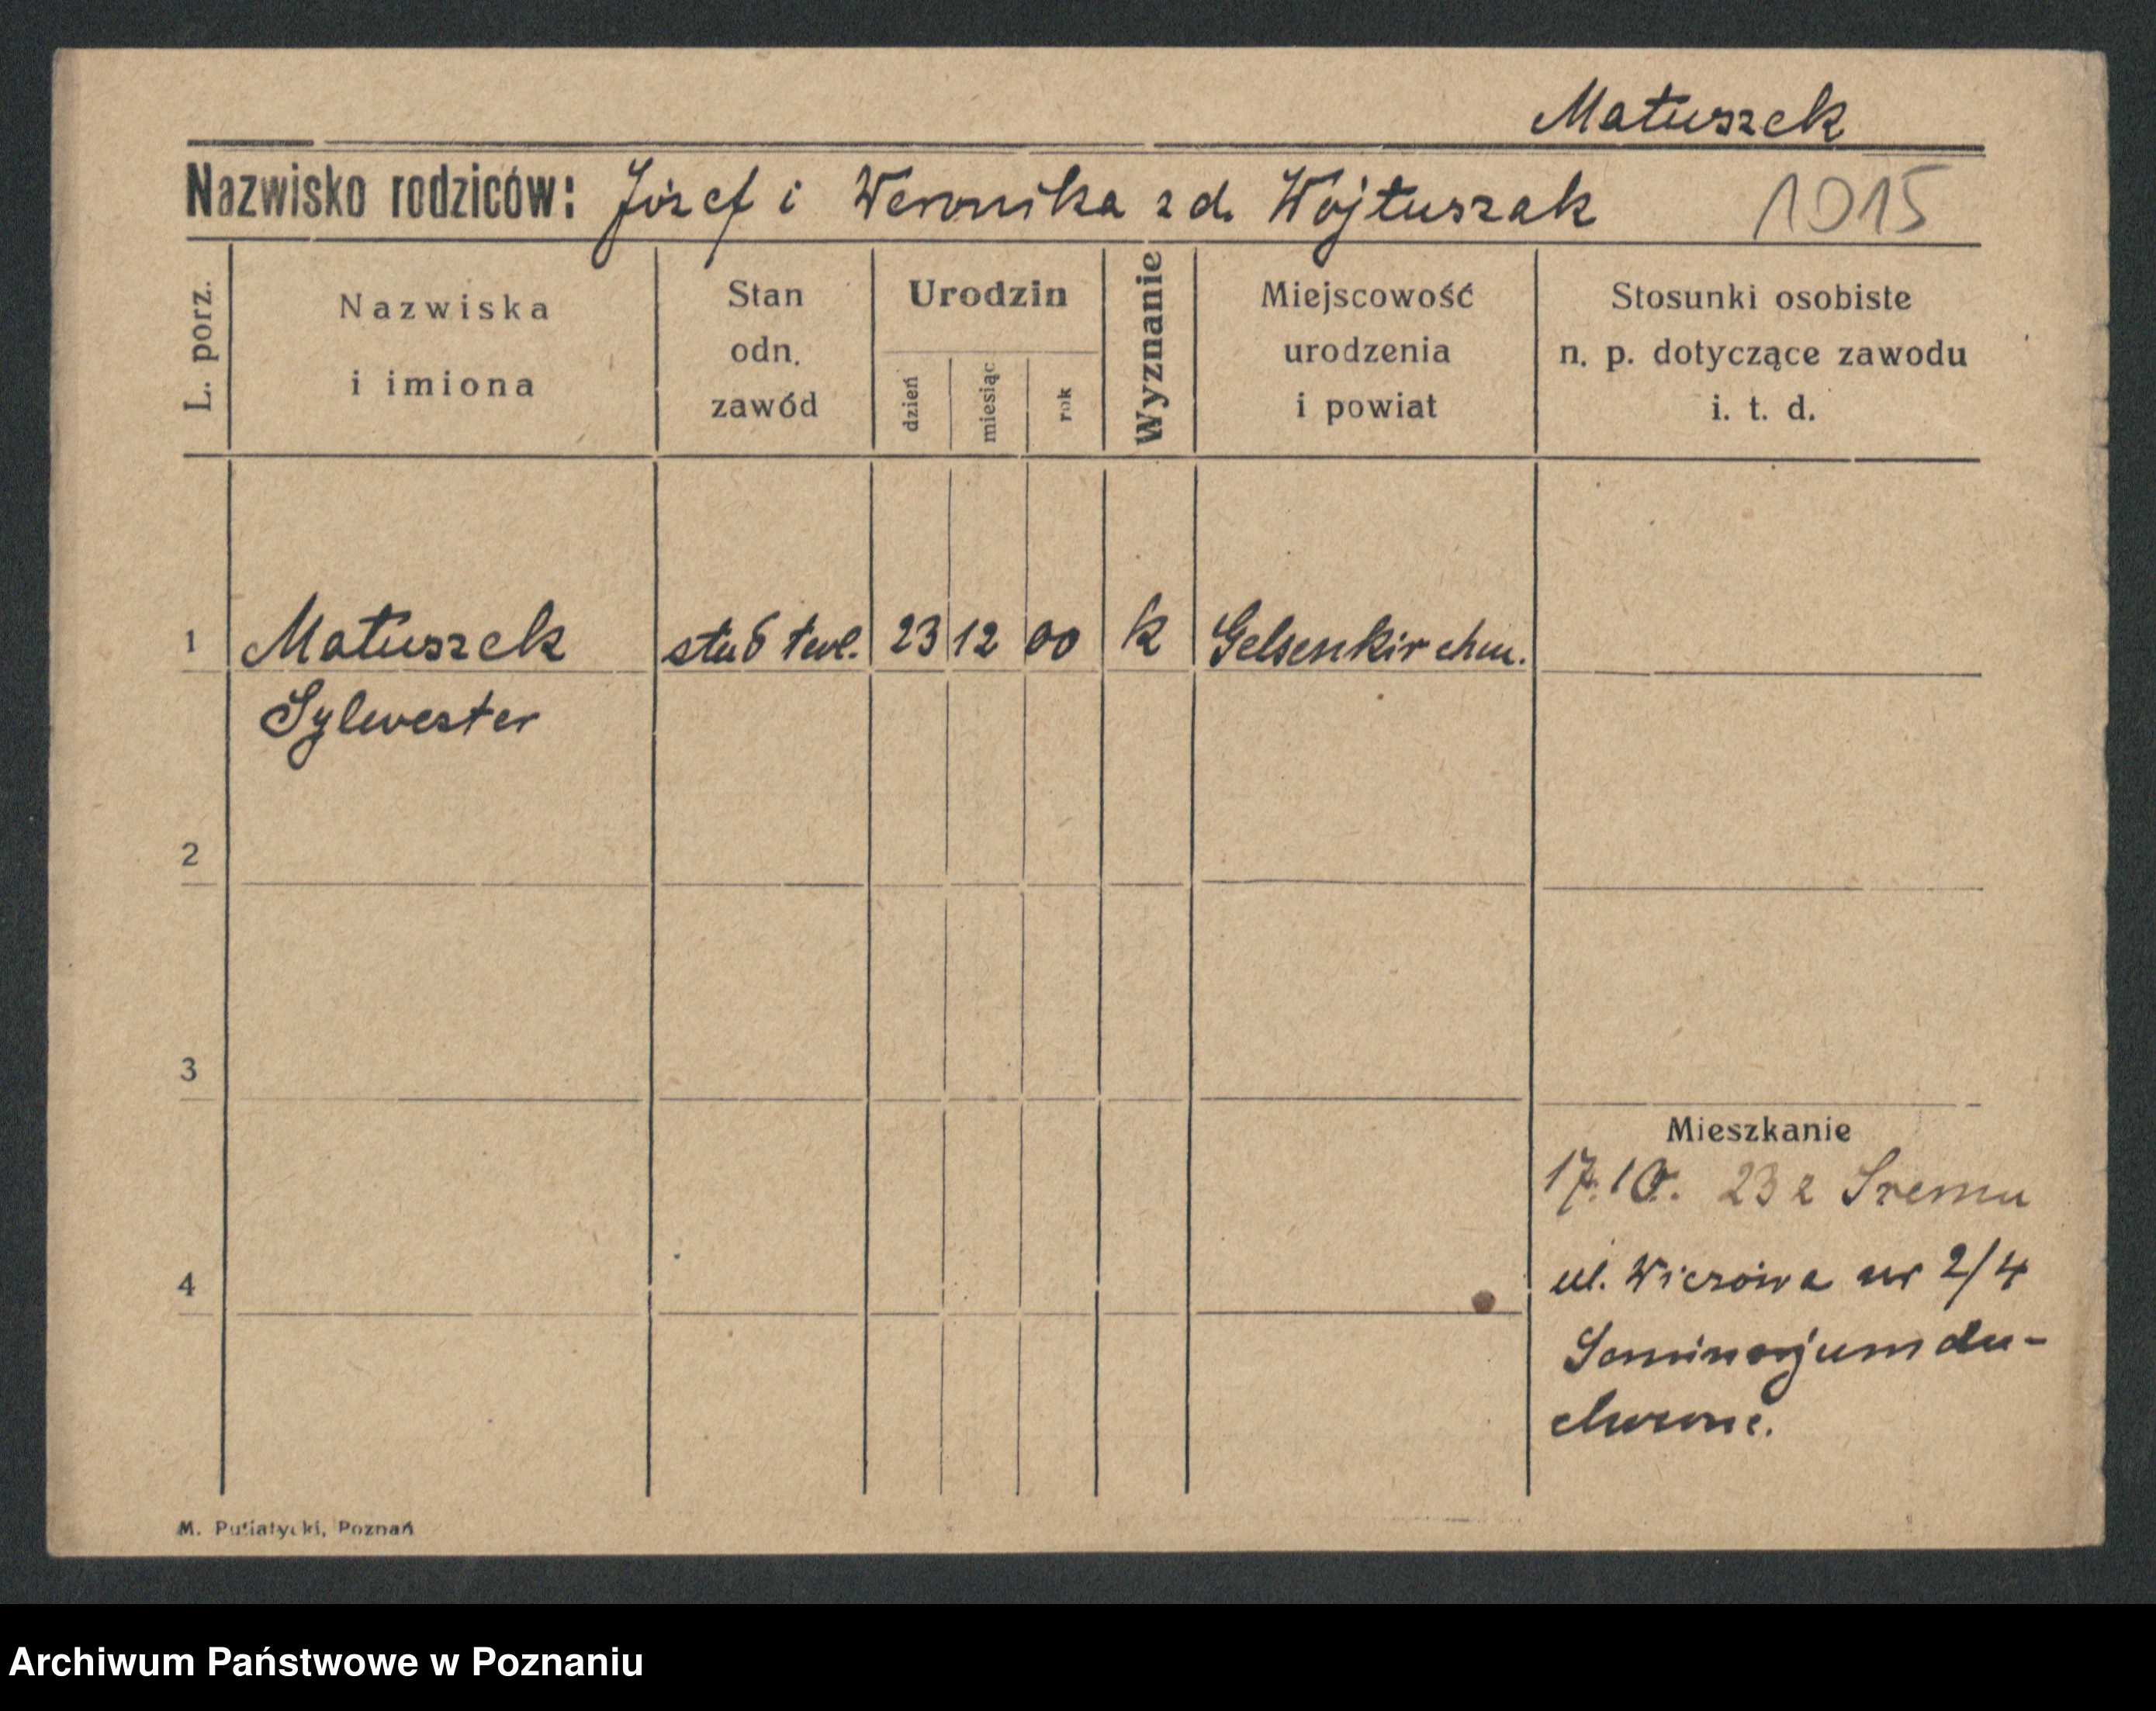 Matuszek
Nazwisko rodziców: Józef i Weronika zd. Wojtuszak 1015
L. porz.
Nazwiska
i imiona
Stan
odn.
zawód
Urodzin
dzień
miesiąc
rok
Wyznanie
Miejscowość
urodzenia
i powiat
Stosunki osobiste
n. p. dotyczące zawodu
i. t. d.
1 Matuszek 23 12 00 k Gelsenkirchen.
Sylwester
2
3
Mieszkanie
17.10. 23 z Śremu
4
ul. Wieżowa nr 2/4
Seminarjum du-
chowne.
M. Putiatycki, Poznań
Archiwum Państwowe w Poznaniu